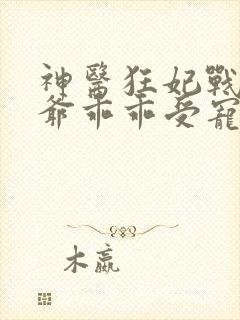 神醫狂妃戰
爺乖乖受寵
木嬴